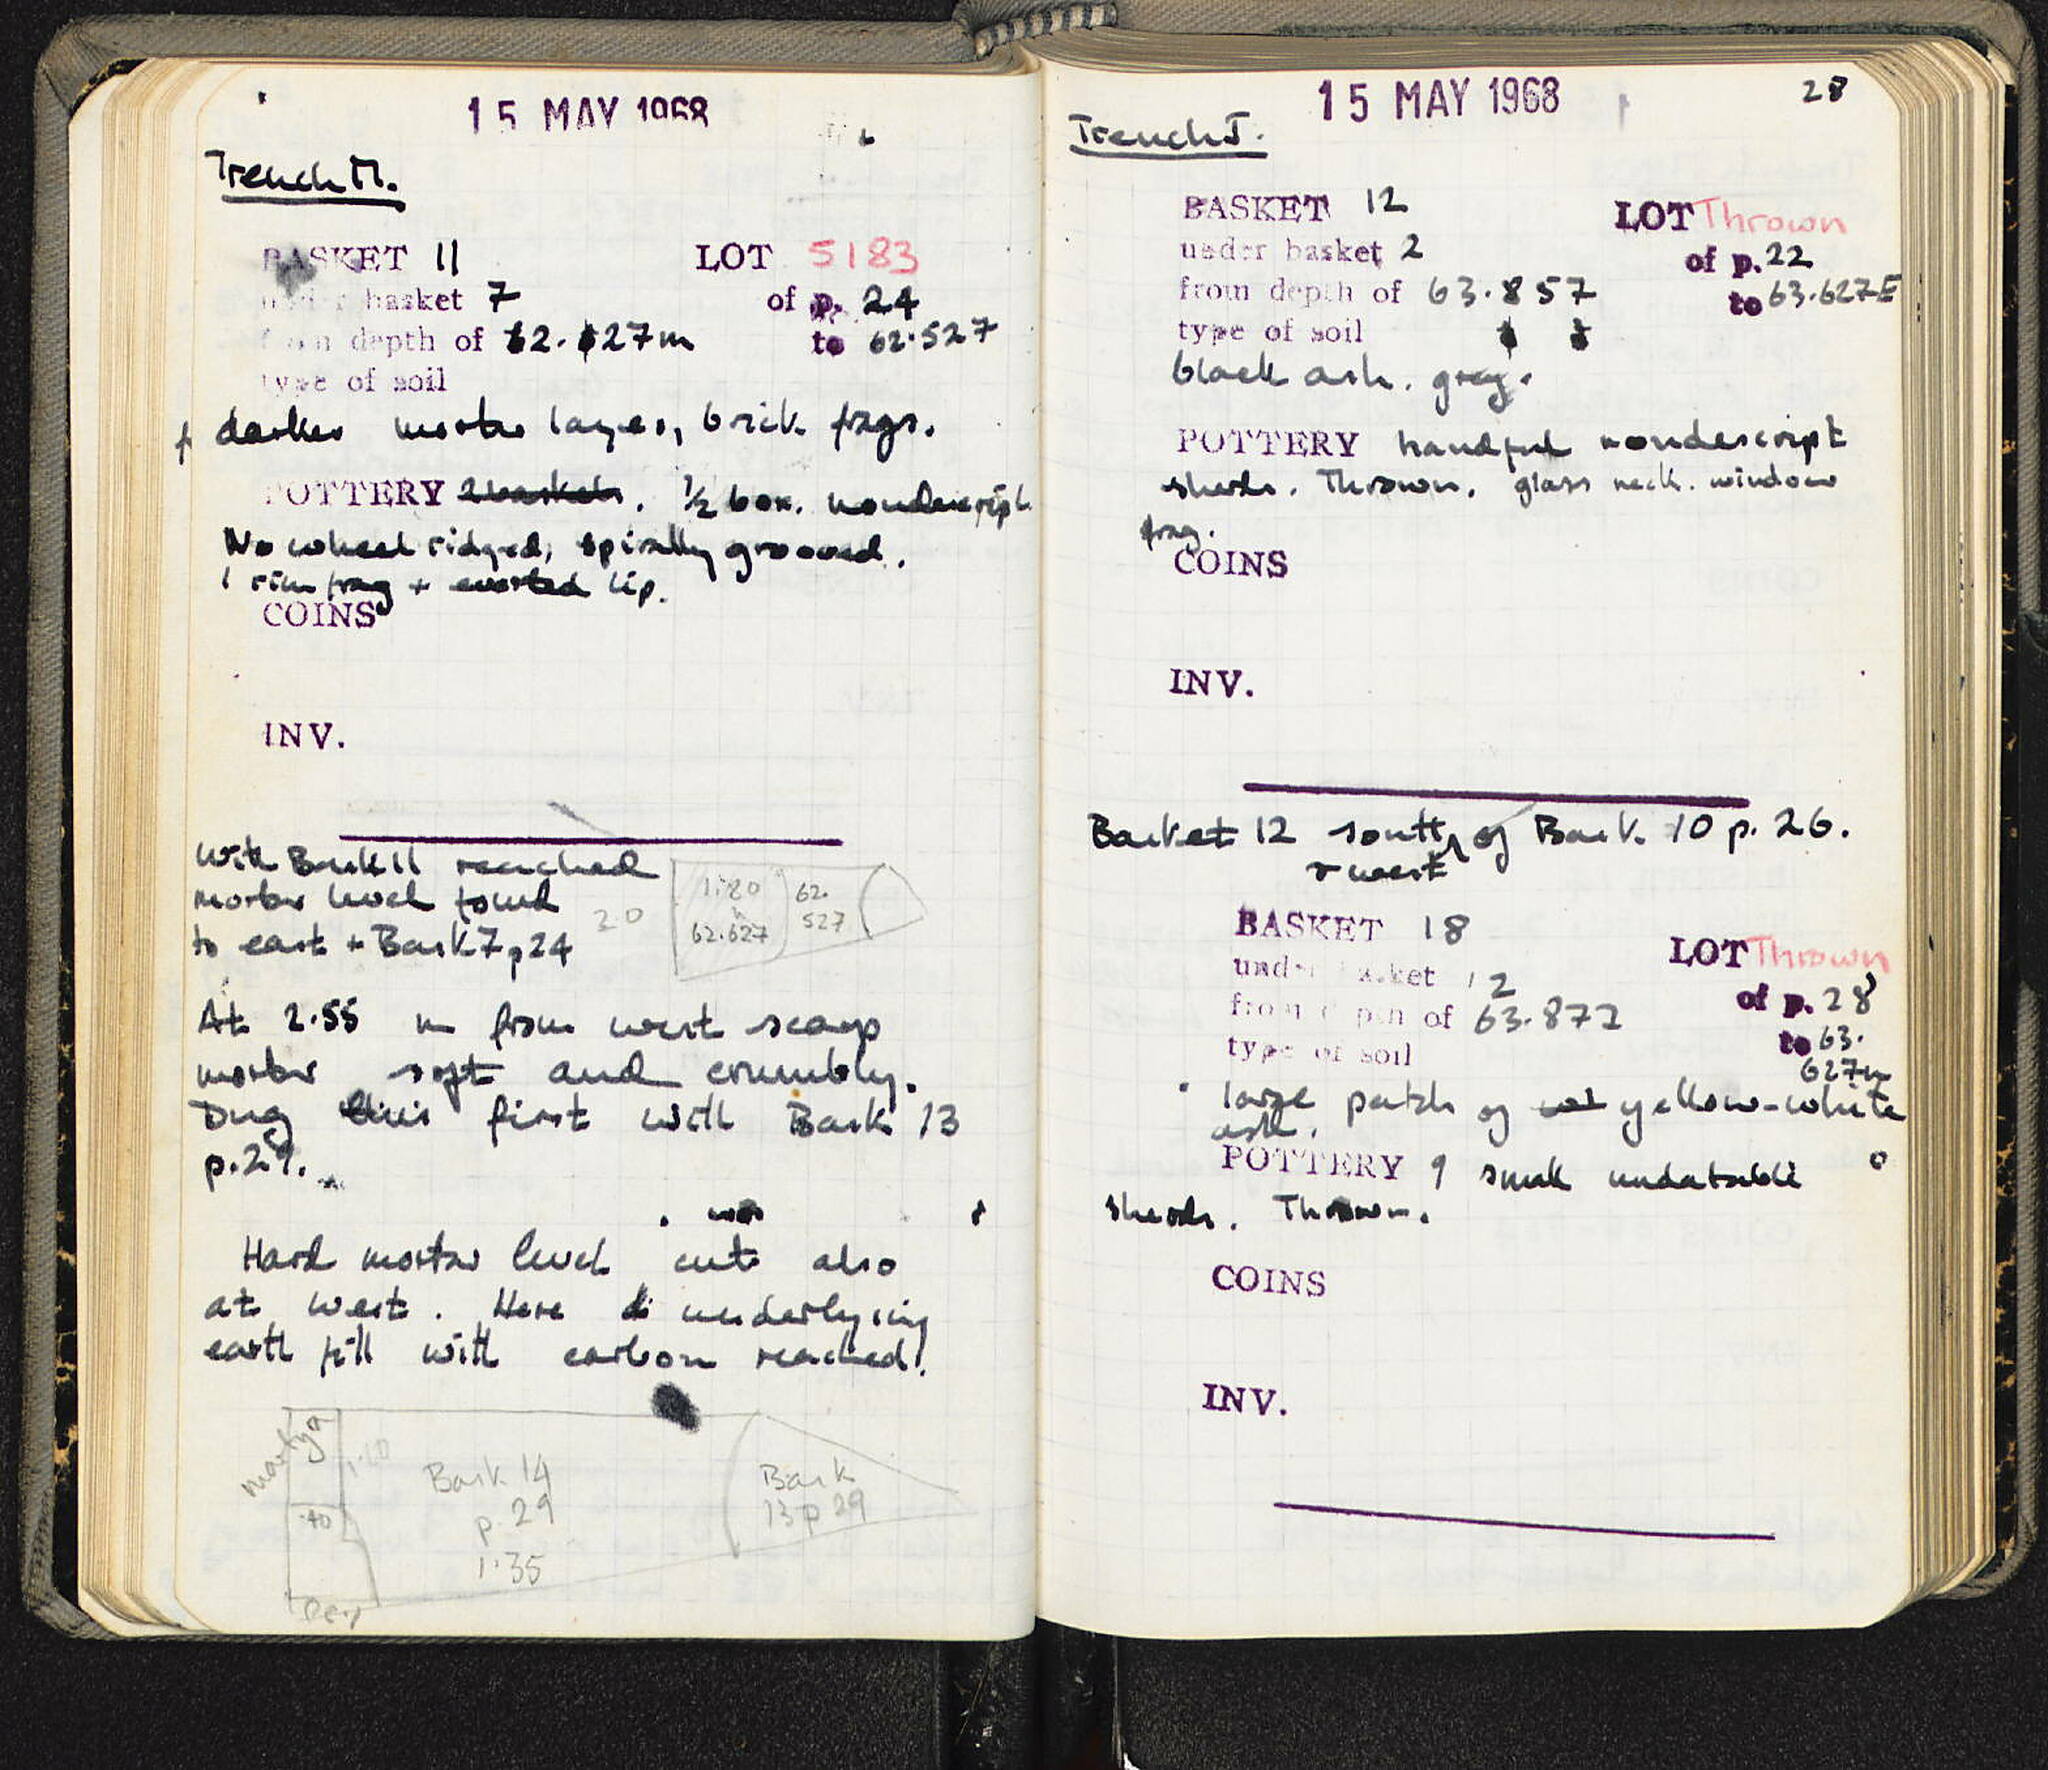 15 MAY 1968
Trench M.
BASKET 11 LOT 5183
under basket 7 of p. 24
from depth of 62.627m to 62.527
type of soil
darker mortar layer, brick frags.
POTTERY 2 baskets. 1/2 box. nondescript
No wheel ridged, spirally grooved.
1 rim frag + everted lip.
COINS
INV.
With Bask 11 reached
mortar level found
to east + Bask 7 p 24
1.80
62.627
62.
527
2.0
At 2.55 m from west scarp
mortar soft and crumbly.
Dug this first with Bask 13
p. 29.
was
Hard mortar level cut also
at west. Here underlying
earth fill with carbon reached.
1.10
.40
Bask 14
p. 29
1.35
Bask
13 p 29
15 MAY 1968
28
Trench J.
BASKET 12 LOT Thrown
under basket 2 of p. 22
from depth of 63.857 to 63.627
type of soil
black ash. grey.
POTTERY handful nondescript
sherds. Thrown. glass neck. window
frag.
COINS
INV.
Basket 12 south of Bask. 10 p. 26.
& west
BASKET 18 LOT Thrown
under basket 12 of p. 28
from depth of 63.877 to 63.
627m
type of soil
large patch of yellow-white
ash.
POTTERY 9 small undatable
sherds. Thrown.
COINS
INV.